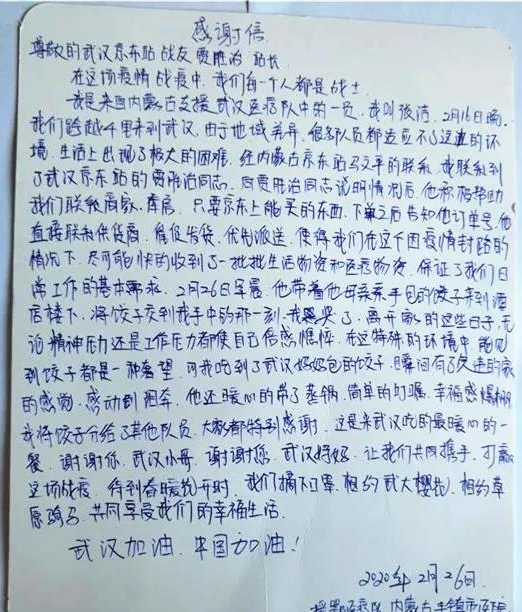 感谢信
尊敬的武汉京东站战友贾胜治站长
在这场疫情战疫中，我们每一个人都是战士。
我是来自内蒙古支援武汉医疗队中的一员，我叫张洁，2月16日晚，
我们跨越千里来到武汉，由于地域差异，很多队员都适应不了这边的环
境，生活上出现了极大的困难，经内蒙古京东站马文平的联系，我联系到
了武汉京东站的贾胜治同志，向贾胜治同志说明情况后，他积极帮助
我们联系商家，库房，只要京东上能买的东西，下单之后告知他订单号，他
直接联系供货商，催促发货，优先派送，使得我们在这个因疫情封路的
情况下，尽可能快的收到了一批批生活物资和医疗物资，保证了我们日
常工作的基本需求，2月26日早晨，他带着他母亲亲手包的饺子来到酒
店楼下，将饺子交到我手中的那一刻，我哭了，离开家的这些日子，无
论精神压力还是工作压力都使自己倍感憔悴，在这特殊的环境中能见
到饺子都是一种奢望，可我吃到了武汉好妈妈包的饺子，瞬间有了久违的家
的感觉，感动到泪奔，他还暖心的带了蒸锅，简单的叮嘱，幸福感爆棚
我将饺子分给了其他队员，大家都特别感谢，这是来武汉吃的最暖心的一
餐，谢谢你，武汉小哥，谢谢您，武汉好妈妈，让我们共同携手，打赢
这场战疫，待到春暖花开时，我们摘下口罩，相约武大樱花，相约草
原骑马，共同享受我们的幸福生活。
武汉加油，中国加油！
2020年2月26日
内蒙古丰镇市医院